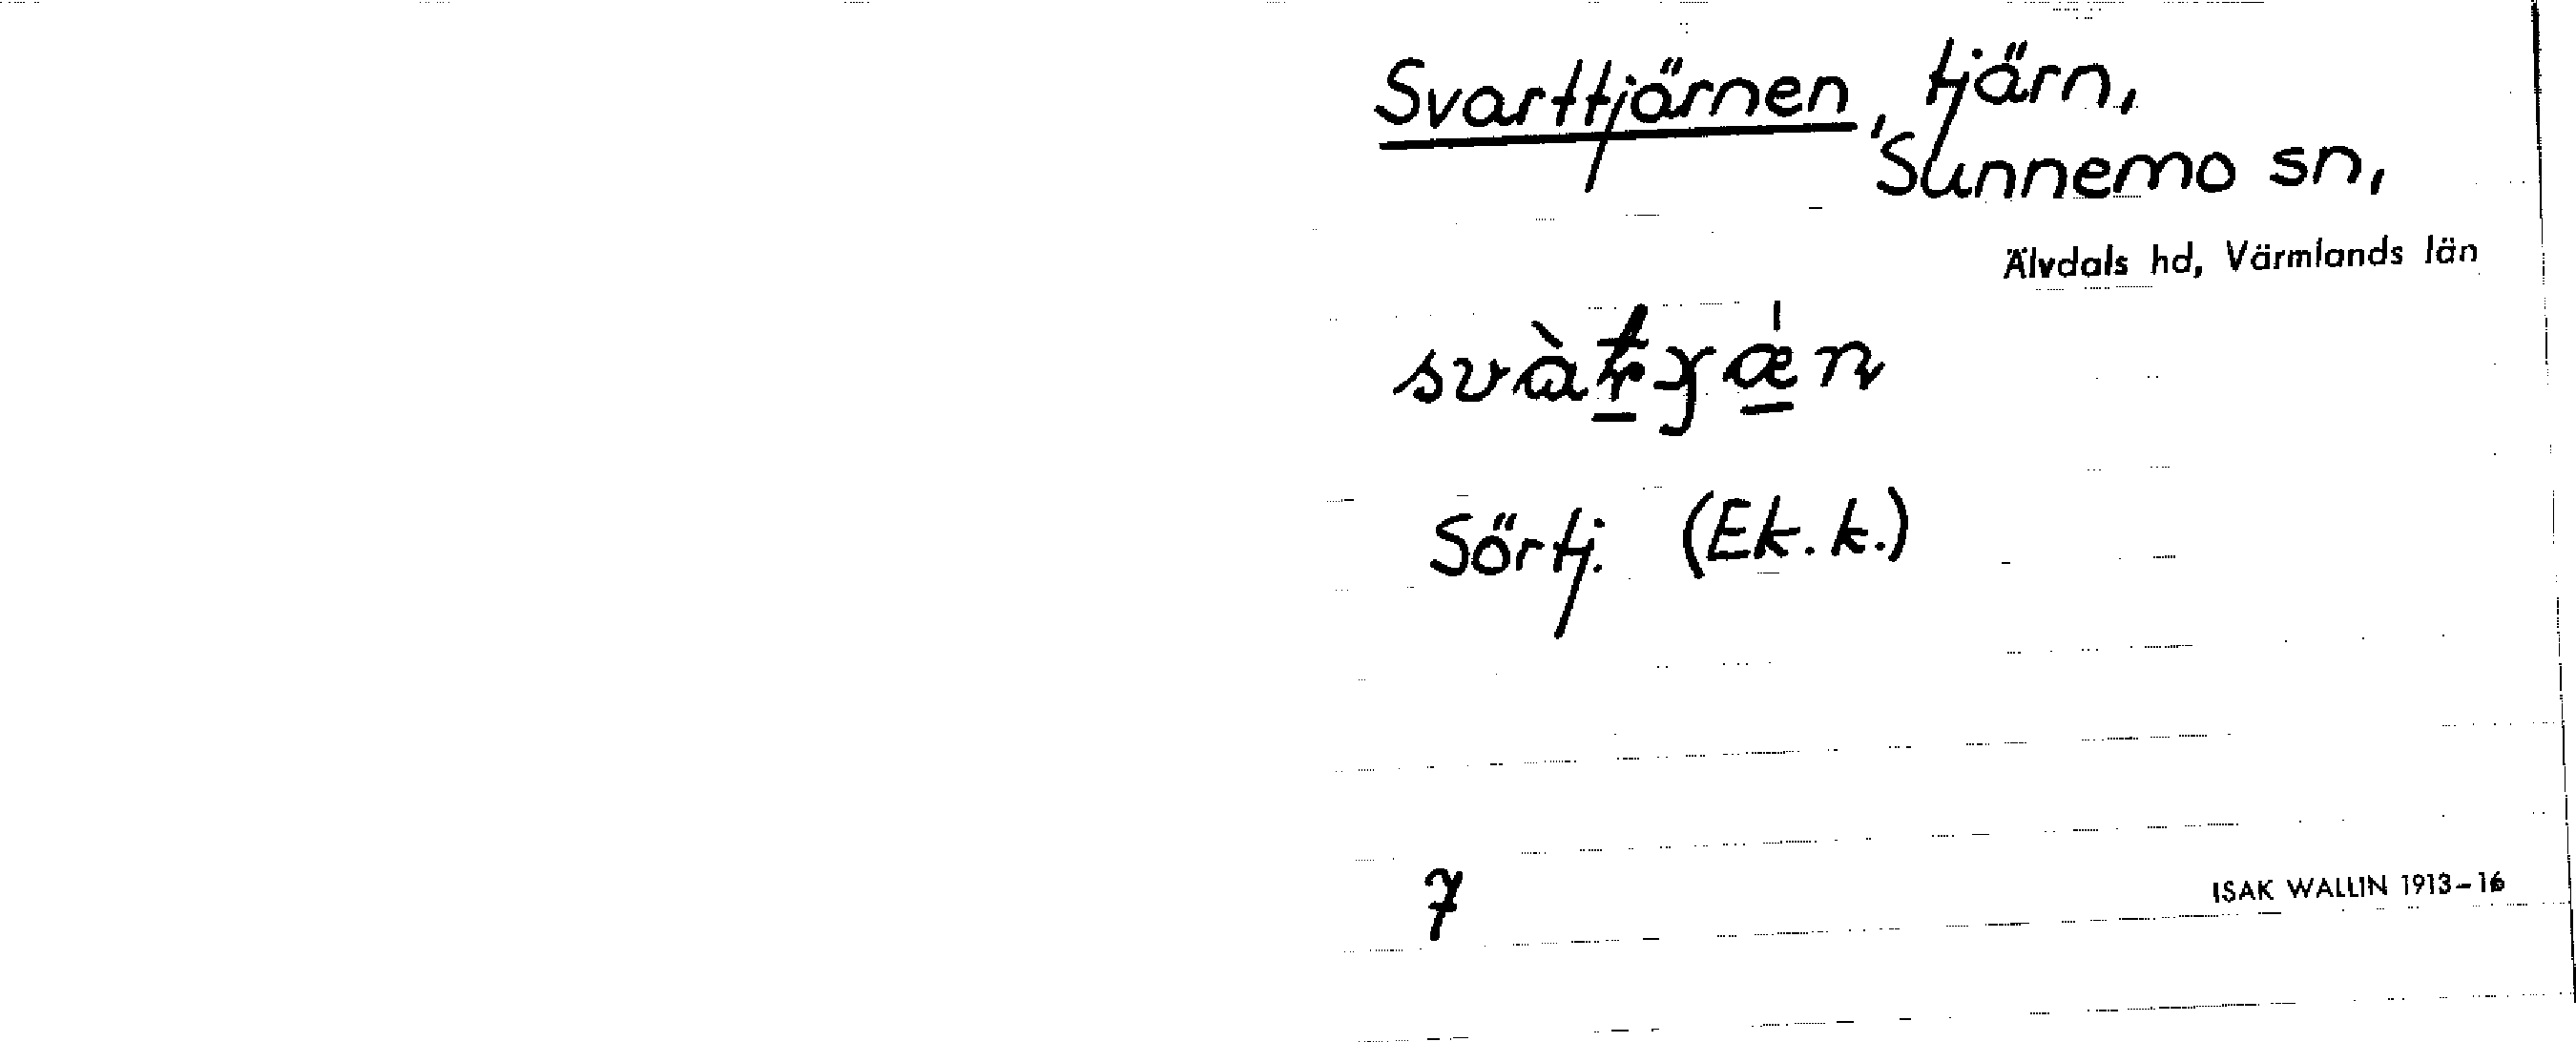 Svarttjärnen, tjärn,
Sunnemo sn,
Älvdals hd, Värmlands län
Sörtj. (Ek. k.)
7
ISAK WALLIN 1913-16